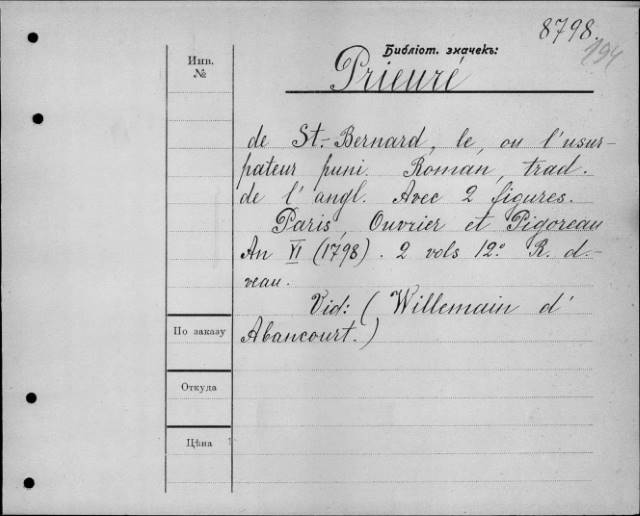 8798.
194
Библіот. значекъ:
Инв.
№
Prieuré
de St.-Bernard, le, ou l'usur-
pateur puni. Roman, trad.
de l'angl. Avec 2 figures.
Paris, Ouvrier et Pigoreau
An VI (1798). 2 vols 12º. R. d.
veau.
Vid: (Willemain d'
Abancourt.)
По заказу
Откуда
Цѣна